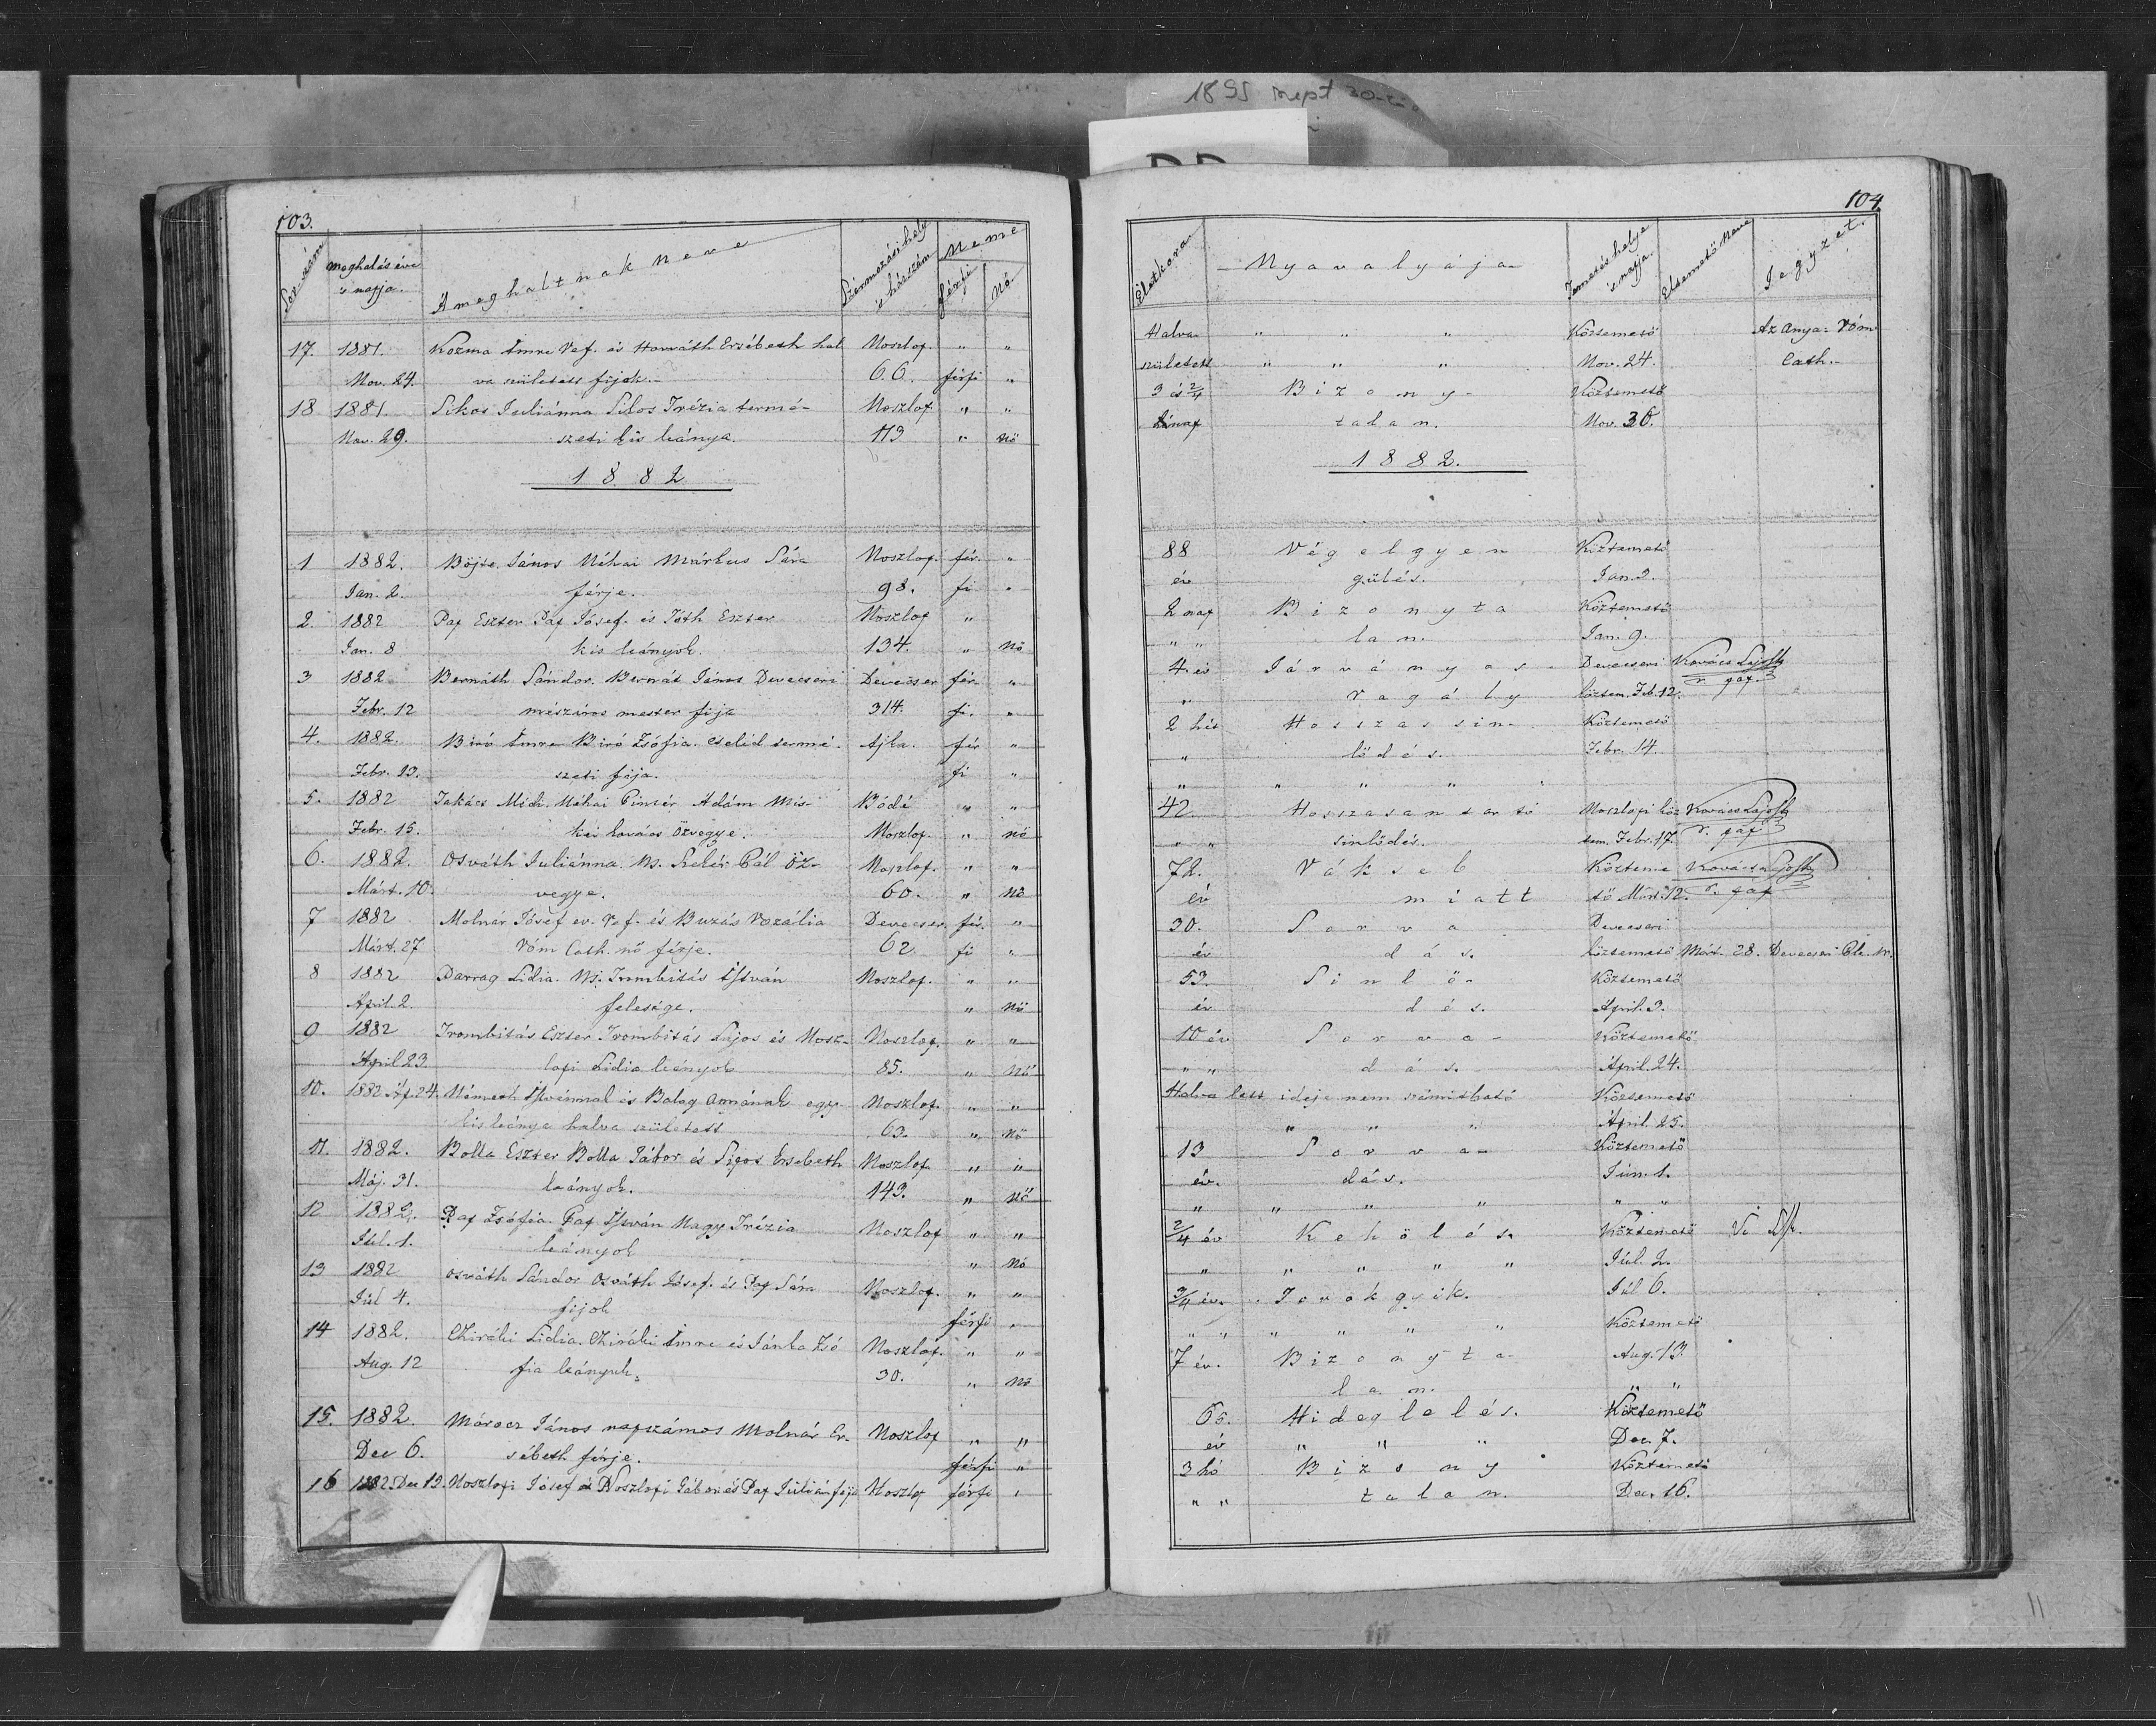 1895 sept 30-
103.
Sor-szám
Meghalás éve
's napja.
A meghaltnak neve
Származási hely
's házszám
Neme
férfi
Nő
17. 1881. Kozma Imre Ref. és Horváth Ersébeth hal Noszlop. " "
Nov. 24. va született fijok.- 66. férfi "
18 1881. Sikos Juliánna Sikos Trézia termé- Noszlop " "
Nov. 29. szeti kis leánya. 113 " nő
1882
1 1882. Böjte János Néhai Márkus Sára Noszlop. fér- "
Jan. 2. férje. 98. fi "
2. 1882 Pap Eszter Pap Jósef. és Tóth Eszter Noszlop "
Jan. 8 kis leányok. 134. " Nő
3 1882 Bernáth Sándor. Bernát János Devecseri Devecser fér- "
Febr. 12 mészáros mester fija 314. fi. "
4. 1882. Biró Imre Biró Zsófia. cseléd termé- Ajka. fér "
Febr. 13. szeti fija. fi "
5. 1882 Takács Néhai Pintér Ádám Mis- Bódé " "
Febr. 15. kei kovács özvegye. Noszlop. " nő
6. 1882. Osváth Juliánna. Ns. Pál Öz- Noszlop. " "
Márt. 10. vegye. 60. " Nő
7 1882 Molnár Jósef ev. Ref. és Buzás Rozália Devecser. fér. "
Márt. 27 Róm Cath. nő férje. 62 fi "
8 1882 Darrag Lidia. Ns. Trombitás István Noszlop. " "
April. 2. felesége. " Nő
9 1882 Trombitás Eszter Trombitás Lajos és Nosz- Noszlop. " "
April 23. lopi Lidia leányok 85. " Nő
10. 1882 Áp. 24. Németh Istvánnal és Balog Annának egy Noszlop. " "
kis leánya halva született 63. " Nő
11. 1882. Bolla Eszter Bolla Gábor és Sipos Ersebeth Noszlop. " "
Máj. 31. leányok. 143. " nő
12 1882. Pap Zsófia. Pap István Nagy Trézia Noszlop " "
Júl. 1. leányok " Nő
13 1882 Osváth Sándor Osváth Jósef. és Pap Sára Noszlop. " "
Júl 4. fijok férfi "
14 1882. Cziráki Lidia. Cziráki Imre és Jánka Zsó Noszlop. " "
Aug. 12 fia leányuk. 30. " Nő
15. 1882. Márocz János napszámos Molnár Er- Noszlop " "
Dec 6. sébeth férje. férfi "
16 1882. Dec 13. Noszlopi Jósef Noszlopi Gábor és Pap Julián fija Noszlop férfi "
104.
Életkora
Nyavalyája
Temetés helye
's napja.
Eltemető Neve
Jegyzet.
Halva " " " Köztemető Az Anya: Róm
született " " " Nov. 24. Cath.-
3 és 2/4 Bizony- Köztemető
talan. Nov. 30.
1882.
88 Végelgyen Köztemető
év gülés. Jan. 2.
2 nap Bizonyta Köztemető
" " lan. Jan. 9.
4. év Járványos Devecseri Kovács Lajos
" ragály köztem. Feb. 12. r. pap.
2 hét Hosszas sin- Köztemető
" lődés. Febr. 14.
" " " "
42. Hosszasan tartó Noszlopi köz Kovács Lajos
" " sinlődés. tem. Febr. 17. r. pap
72. Rákseb Közteme Kovács Lajos
év miatt tő Márt. 12. r. pap
30. Sorva Devecseri
év dás. köztemető Márt. 28. Devecseri
53. Sinlő- Köztemető
év dés. April. 3.
10 év Sorva- Köztemető
" " dás. April. 24.
Halva lett ideje nem számitható Köztemető
" " " April 25.
13 Sorva- Köztemető
év. dás. Jún. 1.
" " " " "
2/4 év Kehölés. Köztemető
" " " " " Júl. 2.
3/4 év. Torokgyik. Júl 6.
" " " " " " Köztemető
7 év. Bizonyta- Aug. 13.
lan. " "
65. Hideglelés. Köztemető
év " " " Dec. 7.
3 hó Bizony Köztemető
" " talan. Dec. 16.
11